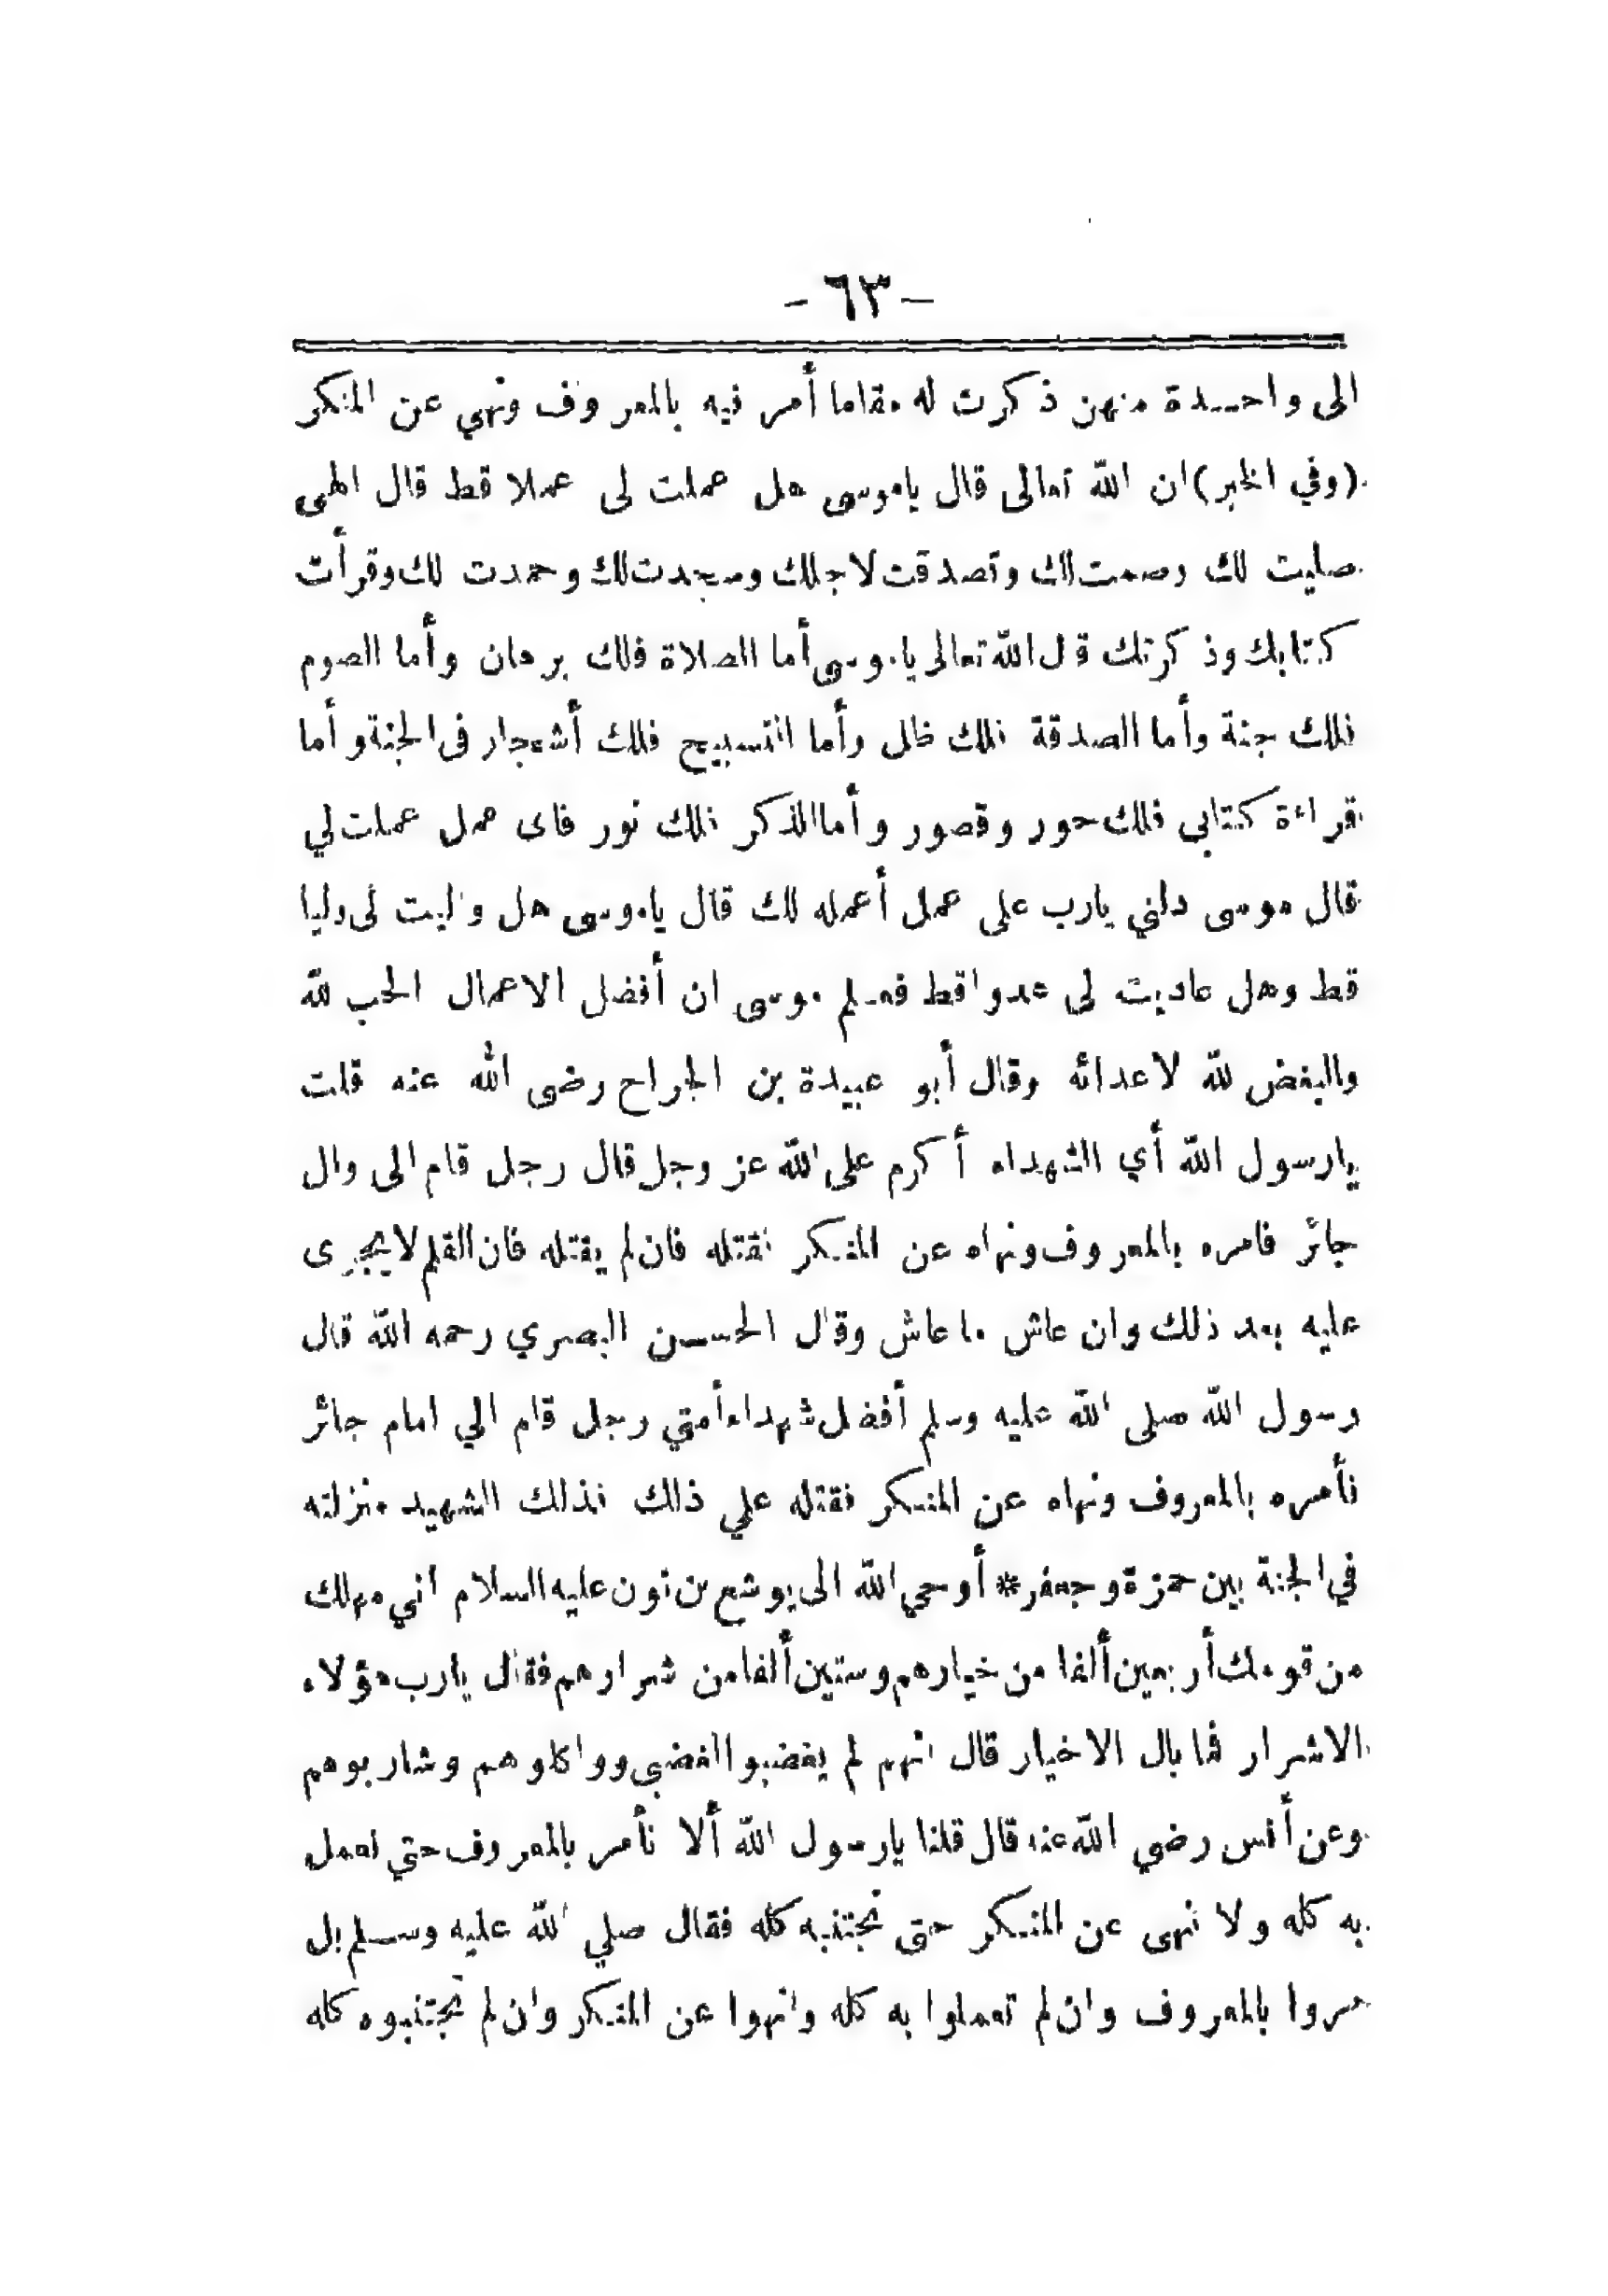 - ٦٣ -
الى واحدة منهن ذكرت له مقاما أمر فيه بالمعروف ونهي عن المنكر
(وفي الخبر) ان الله تعالى قال ياموسى هل عملت لى عملا قط قال الهى
صليت لك وصمت لك وتصدقت لاجلك وسجدت لك وحمدت لك وقرأت
كتابك وذكرتك قال الله تعالى ياموسى أما الصلاة فلك برهان وأما الصوم
فلك جنة وأما الصدقة فلك ظل وأما التسبيح فلك أشجار فى الجنة وأما
قراءة كتابى فلك حور وقصور وأما الذكر فلك نور فاى عمل عملت لي
قال موسى دلني يارب على عمل أعمله لك قال ياموسى هل واليت لى وليا
قط وهل عاديت لى عدوا قط فعلم موسى ان أفضل الاعمال الحب لله
والبغض لله لاعدائه وقال أبو عبيدة بن الجراح رضى الله عنه قلت
يارسول الله أي الشهداء أكرم على الله عز وجل قال رجل قام الى وال
جائر فامره بالمعروف ونهاه عن المنكر فقتله فان لم يقتله فان القلم لا يجرى
عليه بعد ذلك وان عاش ما عاش وقال الحسن البصري رحمه الله قال
رسول الله صلى الله عليه وسلم أفضل شهداء أمتي رجل قام الي امام جائر
فأمره بالمعروف ونهاه عن المنكر فقتله علي ذلك فذلك الشهيد منزلته
في الجنة بين حمزة وجعفر * أوحي الله الى يوشع بن نون عليه السلام اني مهلك
من قومك أربعين ألفا من خيارهم وستين ألفا من شرارهم فقال يارب هؤلاء
الاشرار فما بال الاخيار قال انهم لم يغضبوا لغضبى وواكلوهم وشاربوهم
وعن أنس رضي الله عنه قال قلنا يارسول الله ألا نأمر بالمعروف حتي نعمل
به كله ولا ننهى عن المنكر حتى نجتنبه كله فقال صلي الله عليه وسلم بل
مروا بالمعروف وان لم تعملوا به كله وانهوا عن المنكر وان لم تجتنبوه كله